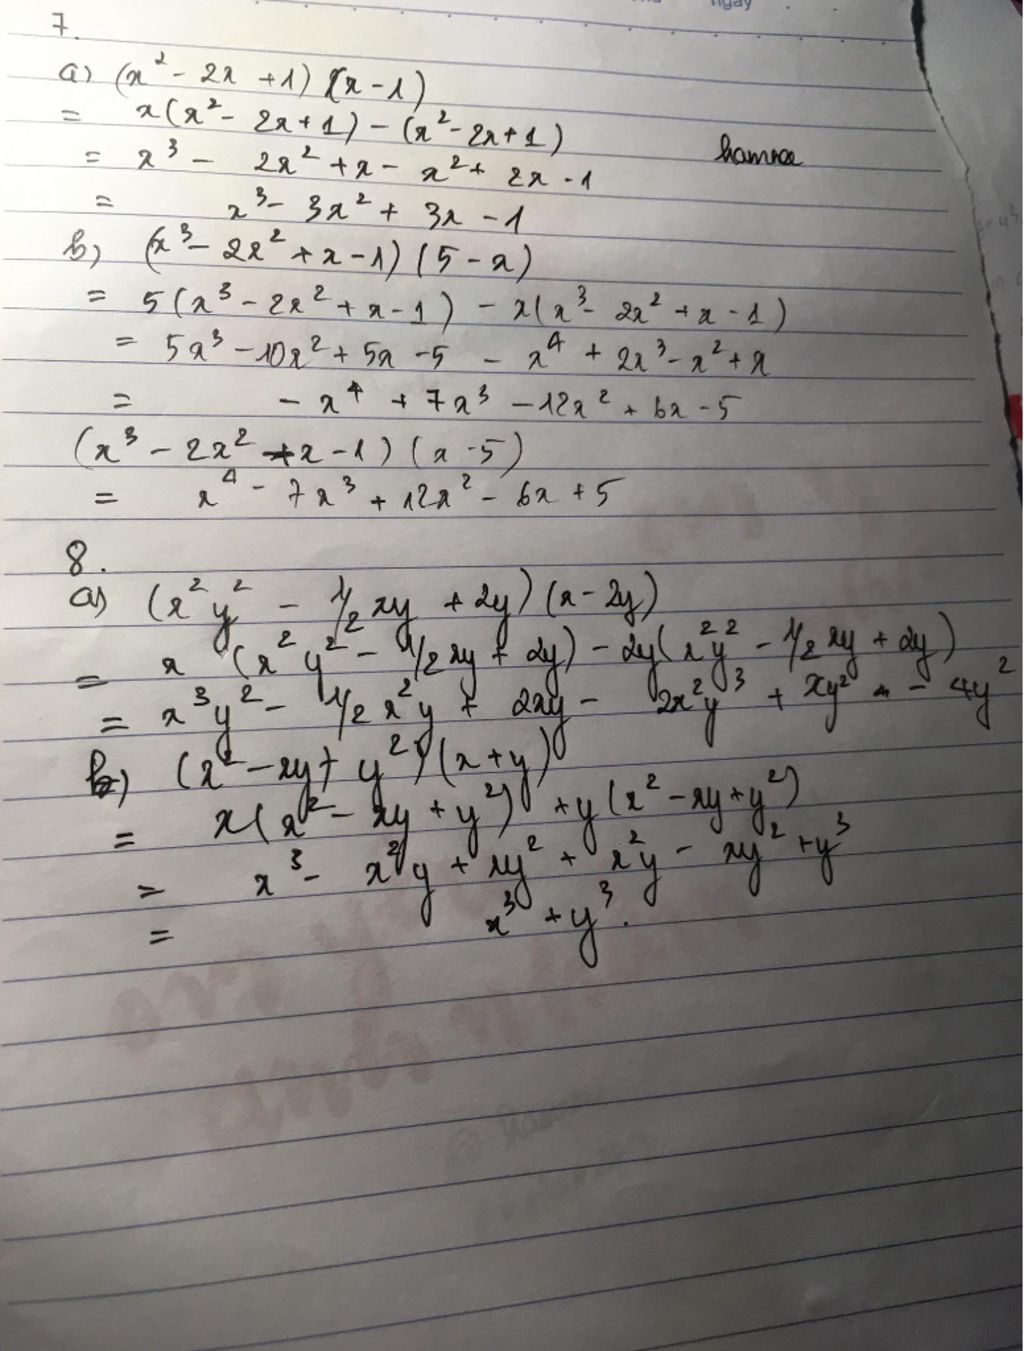 ngày
7.
a) (x² - 2x + 1)(x - 1)
= x(x² - 2x + 1) - (x² - 2x + 1)
= x³ - 2x² + x - x² + 2x - 1
= x³ - 3x² + 3x - 1
b) (x³ - 2x² + x - 1)(5 - x)
= 5(x³ - 2x² + x - 1) - x(x³ - 2x² + x - 1)
= 5x³ - 10x² + 5x - 5 - x⁴ + 2x³ - x² + x
= - x⁴ + 7x³ - 12x² + 6x - 5
(x³ - 2x² + x - 1)(x - 5)
= x⁴ - 7x³ + 12x² - 6x + 5
8.
a) (x²y² - 1/2 xy + 2y)(x - 2y)
= x (x²y² - 1/2 xy + 2y) - 2y(x²y² - 1/2 xy + 2y)
= x³y² - 1/2 x²y + 2xy - 2x²y³ + xy² - 4y²
b) (x² - xy + y²)(x + y)
= x(x² - xy + y²) + y(x² - xy + y²)
= x³ - x²y + xy² + x²y - xy² + y³
= x³ + y³.